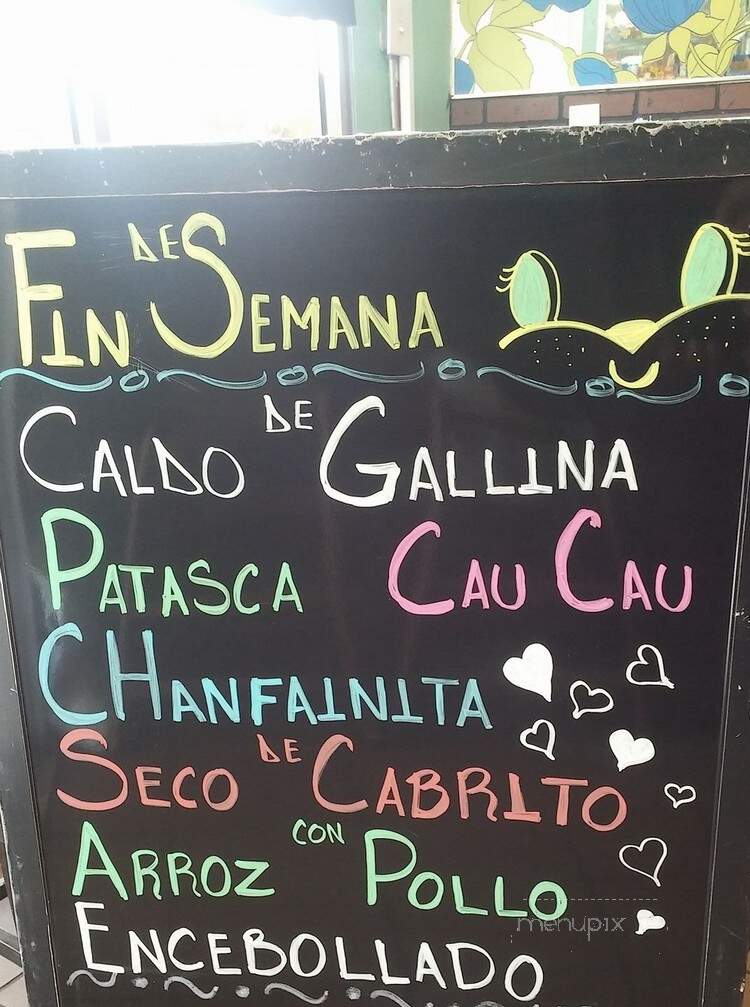 FIN DE SEMANA
CALDO DE GALLINA
PATASCA CAU CAU
CHANFAINITA
SECO DE CABRITO
ARROZ CON POLLO
menupix
ENCEBOLLADO